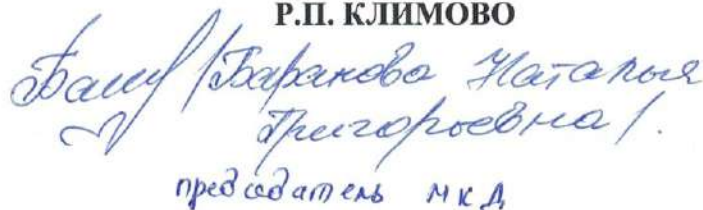 Р.П. КЛИМОВО
/Баранова Наталья
Григорьевна/.
председатель МКД